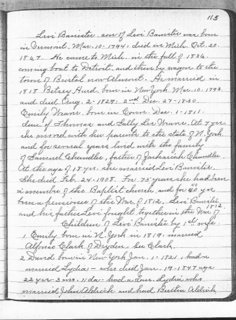 113
Levi Banister son of Levi Banister was born
in Vermont. Mar. 10. 1794. died in Mich. Oct. 20.
1867. He came to Mich. in the fall of 1836
coming boat to Detroit, and then by wagon to the
town of Bristol near Almont. He married in
1818 Betsey Hurd born in New York Mar. 10. 1793
and died Aug. 2 - 1829. 2nd Dec. 27 - 1830.
Emily Warne born in Conn. Dec. 1. 1811.
dau. of Thomas and Sally Lee Warne. At 7 yrs
she moved with her parents to the state of N. York
and for several years lived with the family
of Samuel Chandler, father of Zachariah Chandler
At the age of 18 yrs. she married Levi Banister.
She died Feb. 24. 1905. For 75 years she had been
a member of the Baptist church and for 60 yrs
been a pensioner of the War of 1812. Levi Banister
and his father Levi fought together in the War of
Children of Levi Banister by 1st wife
1. Emily born in N. York in 1819. married
Alfonso Clark of Dryden. See Clark.
2. David born in New York Jan. 11. 1821. and
married Lydia - who died Jan. 19. 1848 age
22 yrs. 2 mos. 11 da. had a dau. Lydia, who
married John Aldrich and had Burton Aldrich